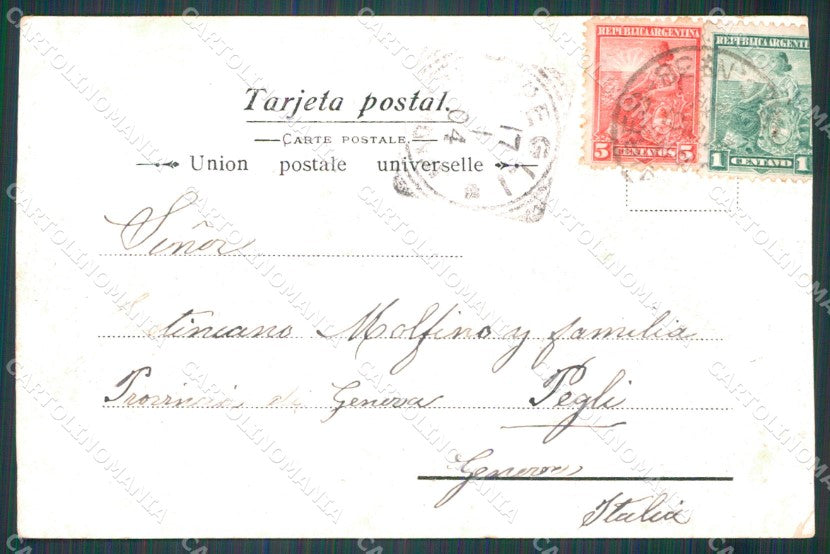 REPUBLICA ARGENTINA
5 CENTAVOS 5
REPUBLICA ARGENTINA
1 CENTAVO 1
Tarjeta postal.
CARTE POSTALE
Union postale universelle
PEGLI
17
1
04
Señor
Molfino y familia
Provincia di Genova Pegli
Genova
Italia
CARTOLINOMANIA